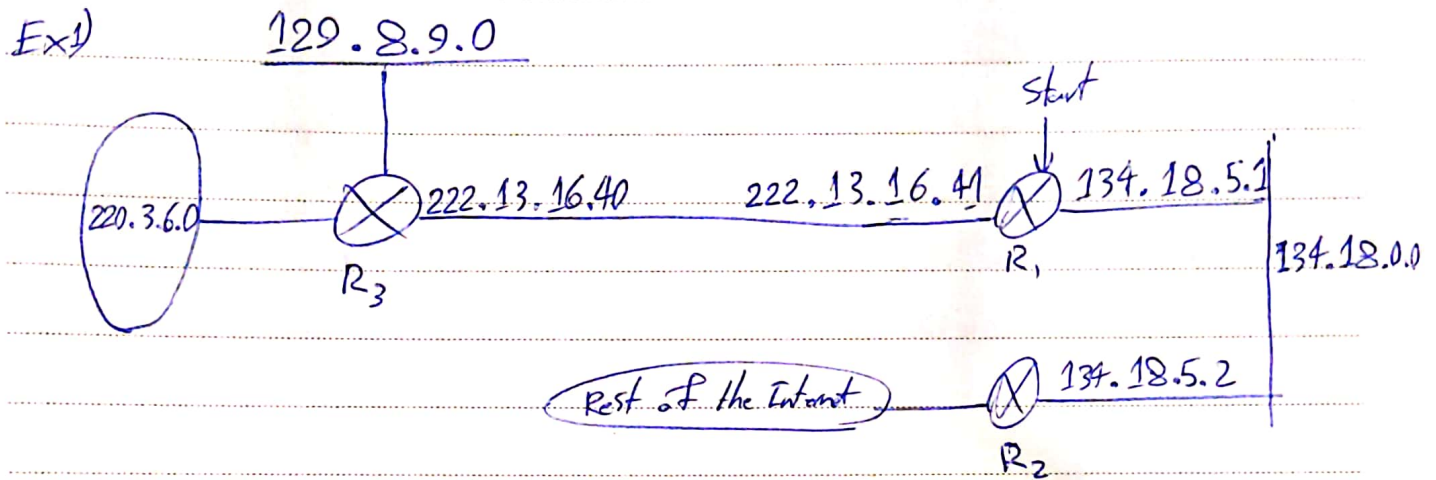 Ex1)
129.8.9.0
Start
220.3.6.0
222.13.16.40
222.13.16.41
134.18.5.1
R3
R1
134.18.0.0
Rest of the Internet
134.18.5.2
R2